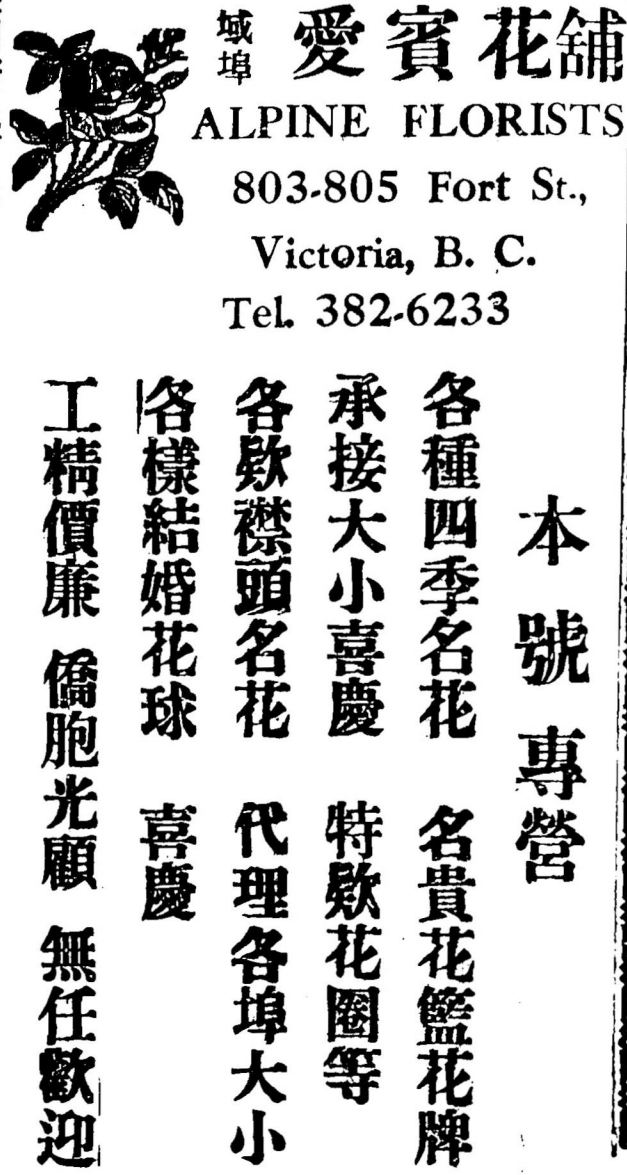 域埠 愛賓花舖
ALPINE FLORISTS
803-805 Fort St.,
Victoria, B. C.
Tel. 382-6233
本號專營
各種四季名花 名貴花籃花牌
承接大小喜慶 特欵花圈等
各欵襟頭名花 代理各埠大小
各樣結婚花球 喜慶
工精價廉 僑胞光顧 無任歡迎